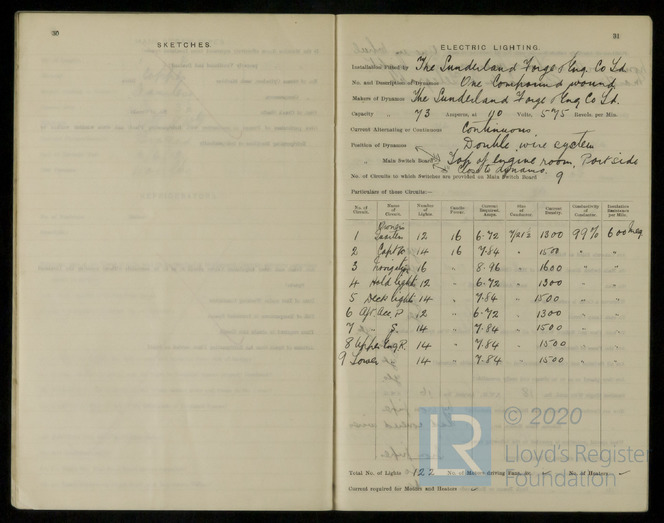 30
SKETCHES.
31
ELECTRIC LIGHTING.
Installation Fitted by The Sunderland Forge & Eng. Co Ld
No. and Description of Dynamos One Compound wound
Makers of Dynamos The Sunderland Forge & Eng Co Ld.
Capacity " 73 Amperes, at 110 Volts, 575 Revols. per Min.
Current Alternating or Continuous Continuous
Double wire system
Position of Dynamos
" Main Switch Board Top of engine room, Port side
Close to dynamo.
No. of Circuits to which Switches are provided on Main Switch Board 9
Particulars of these Circuits:—
No. of Circuit. Name of Circuit. Number of Lights. Candle Power. Current Required, Amps. Size of Conductor. Current Density. Conductivity of Conductor. Insulation Resistance per Mile.
1 12 16 6.72 1300 99% 600 meg
2 Capt 14 16 7.84 " 1500 " "
3 16 " 8.96 " 1600 " "
4 Hold light 12 " 6.72 " 1300 " "
5 Deck light 14 " 7.84 " 1500 " "
6 Aft Acc. P 12 " 6.72 " 1300 " "
7 " S. 14 " 7.84 " 1500 " "
8 Upper Eng R. 14 " 7.84 " 1500 " "
9 Lower 14 " 7.84 " 1500 " "
Total No. of Lights 122 No. of Motors driving Fans, &c. No. of Heaters
Current required for Motors and Heaters
© 2020
LR
Lloyd's Register
Foundation